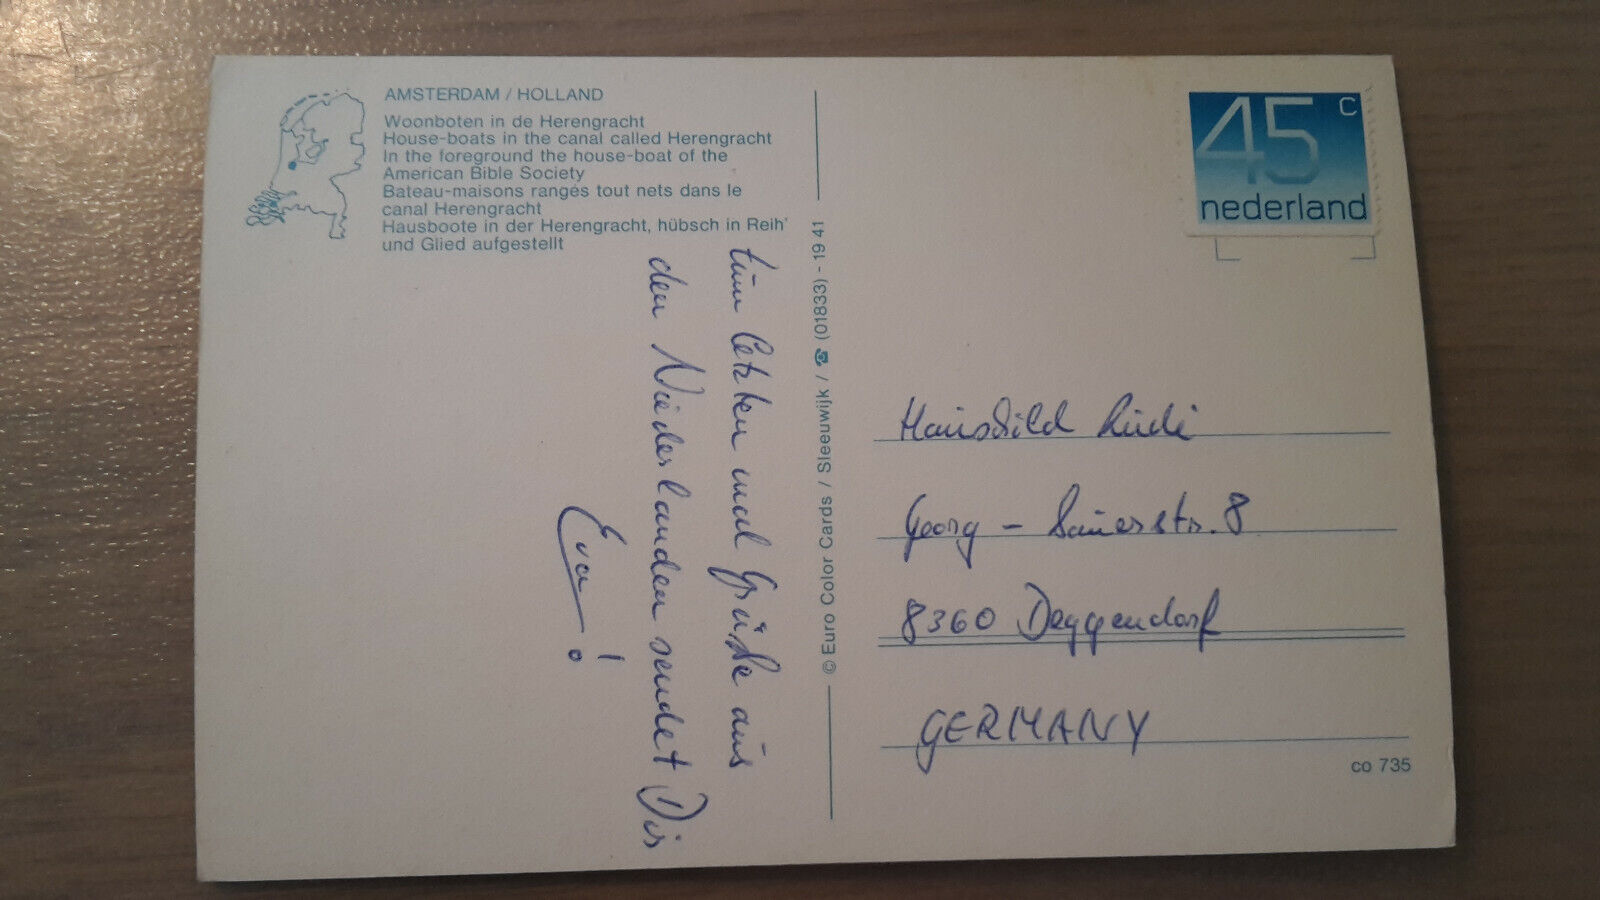 AMSTERDAM / HOLLAND
Woonboten in de Herengracht
House-boats in the canal called Herengracht
In the foreground the house-boat of the
American Bible Society
Bateau-maisons rangés tout nets dans le
canal Herengracht
Hausboote in der Herengracht, hübsch in Reih'
und Glied aufgestellt
zum letzten mal Grüße aus
den Niederlanden sendet Dir
Eva!
© Euro Color Cards / Sleeuwijk / ☎ (01833) - 19 41
45 c
nederland
Rudi
Georg - Sauerstr. 8
8360 Deggendorf
GERMANY
co 735